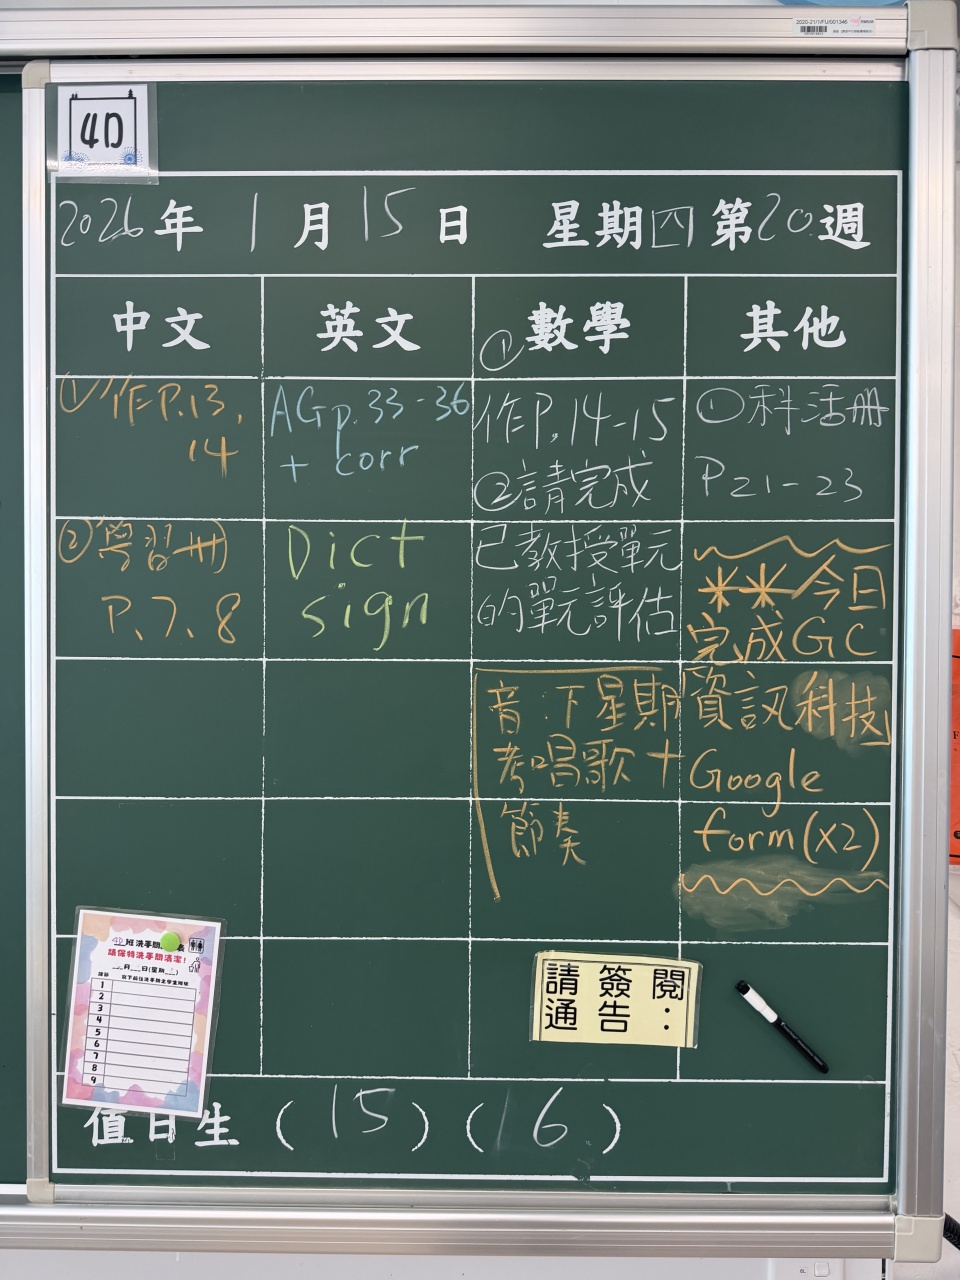 2020-21/1/FU/001346
4D
2026年 1月15日 星期四 第20週
中文
①作P.13,
14
②學習冊
P.7、8
英文
AGp.33-36
+ corr
Dict
sign
數學
①
作P.14-15
②請完成
已教授單元
的單元評估
音:下星期
考唱歌+
節奏
其他
①科活冊
P21-23
**今日
完成GC
資訊科技
Google
form(x2)
4D班洗手間
表
請保持洗手間清潔!
月 日(星期 )
課節
1
2
3
4
5
6
7
8
9
請簽閱
通告:
值日生 (15)(16)